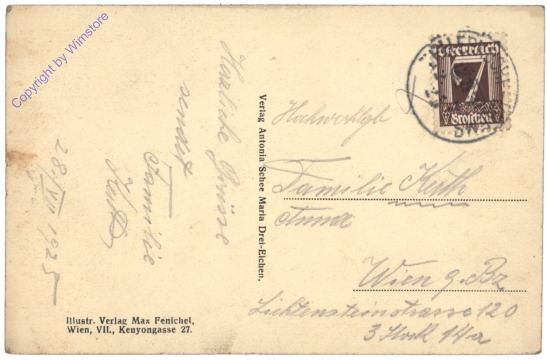 Copyright by Wimstore
Herzliche Grüsse
sendet
Familie
28/VII 1925
Verlag Antonia Schee Maria Drei-Eichen.
Illustr. Verlag Max Fenichel,
Wien, VII., Kenyongasse 27.
Österreich
7
Groschen
Hochwohlgb
Familie
Wien 9. Bz
Lichtensteinstrasse 120
3 Stock 14a